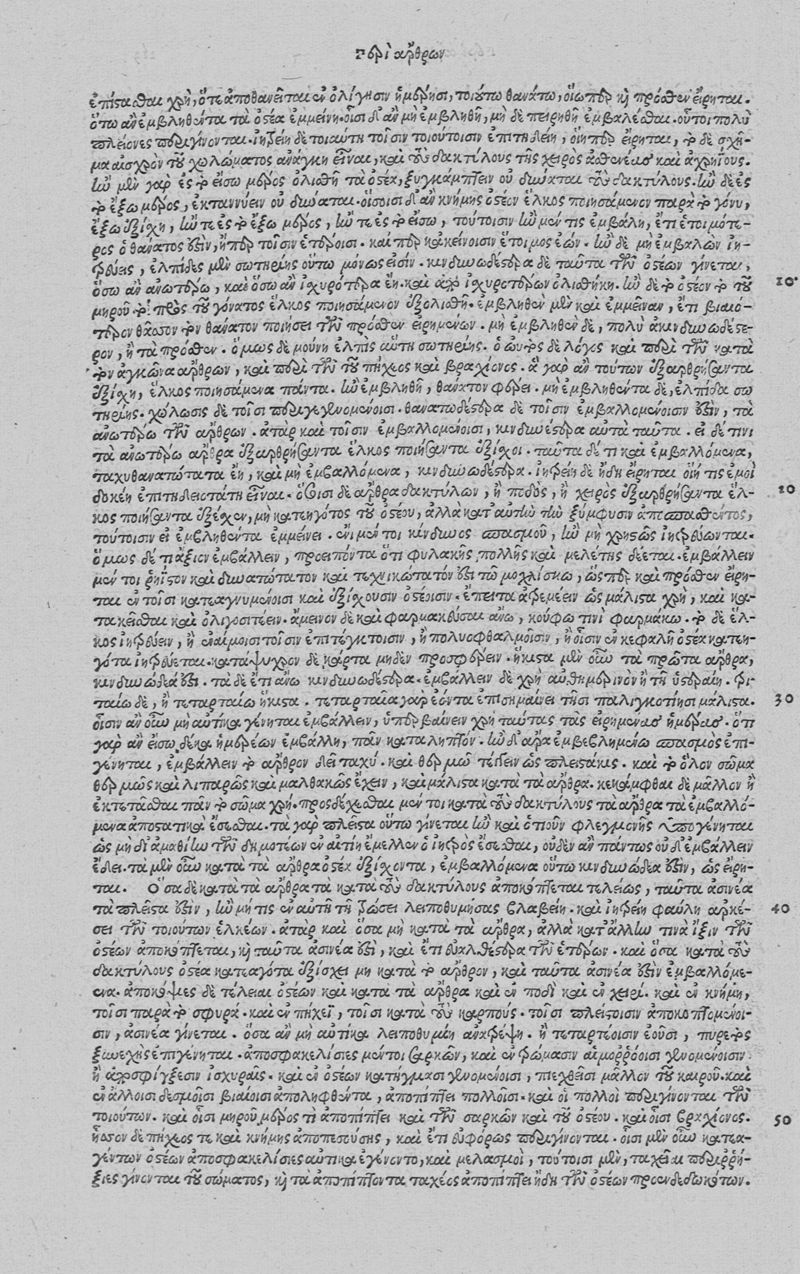 Περὶ ἄρθρων
ἐπίστασθαι χρὴ, ὅτι ἀποθανεῖται ἐν ὀλίγησιν ἡμέρησι, τοιούτῳ θανάτῳ, οἵῳπερ καὶ πρόσθεν εἴρηται.
ὅτῳ ἂν ἐμβληθέντα τὰ ὀστέα ἐμμείνῃ. οἷσι δ' ἂν μὴ ἐμβληθῇ, μὴ δὲ πειρηθῇ ἐμβαλέσθαι. οὗτοι πολὺ
πλείονες περιγίνονται. ἰητρείη δὲ τοιαύτη τοῖσιν τοιούτοισιν ἐπιτηδείη, οἵηπερ εἴρηται, τὸ δὲ σχῆ-
μα αἰσχρὸν τοῦ χωλώματος ἀνάγκη εἶναι, καὶ τοὺς δακτύλους τῆς χειρὸς ἀσθενέας καὶ ἀχρηίους.
ἢν μὲν γὰρ ἐς τὸ εἴσω μέρος ὀλισθῇ τὰ ὀστέα, ξυγκάμπτειν οὐ δύναται τοὺς δακτύλους. ἢν δὲ ἐς
τὸ ἔξω μέρος, ἐκτανύειν οὐ δύναται. οἷσι δ' ἂν κνήμης ὀστέον ἕλκος ποιησάμενον παρὰ τὸ γόνυ,
ἔξω ἐξίσχῃ, ἤν τε ἐς τὸ ἔξω μέρος, ἤν τε ἐς τὸ εἴσω, τούτοισιν ἢν μέν τις ἐμβάλῃ, ἔτι ἑτοιμότε-
ρος ὁ θάνατός ἐστιν, ἤπερ τοῖσιν ἑτέροισι. καίπερ κἀκείνοισιν ἕτοιμος ἐών. ἢν δὲ μὴ ἐμβαλὼν ἰη-
τρεύῃς, ἐλπίδες μὲν σωτηρίης οὕτω μόνως εἰσίν. κινδυνωδέστερα δὲ ταῦτα τῶν ὀστέων γίνεται,
ὅσῳ ἂν ἀνωτέρω, καὶ ὅσῳ ἂν ἰσχυρότερα ἔῃ. καὶ ἀπὸ ἰσχυροτέρων ὀλισθήκῃ. ἢν δὲ τὸ ὀστέον τὸ τοῦ
μηροῦ τὸ πρὸς τοῦ γόνατος ἕλκος ποιησάμενον ἐξολισθῇ. ἐμβληθὲν μὲν καὶ ἐμμεῖναν, ἔτι βιαιό-
τερον θᾶσσον τὸν θάνατον ποιήσει τῶν πρόσθεν εἰρημένων. μὴ ἐμβληθὲν δὲ, πολὺ ἀκινδυνωδέστε-
ρον, ἢ τὰ πρόσθεν. ὅμως δὲ μούνη ἐλπὶς αὕτη σωτηρίης. ὁ ωὑτὸς δὲ λόγος καὶ περὶ τῶν κατὰ
τὸν ἀγκῶνα ἄρθρων, καὶ περὶ τῶν τοῦ πήχεος καὶ βραχίονος. ἃ γὰρ ἂν τούτων ἐξαρθρήσαντα
ἐξίσχῃ, ἕλκος ποιησάμενα πάντα. ἢν ἐμβληθῇ, θάνατον φέρει. μὴ ἐμβληθέντα δὲ, ἐλπίδα σω
τηρίης. χώλωσις δὲ τοῖσι περιγενομένοισι. θανατωδέστερα δὲ τοῖσιν ἐμβαλλομένοισίν ἐστιν, τὰ
ἀνωτέρω τῶν ἄρθρων. ἀτὰρ καὶ τοῖσιν ἐμβαλλομένοισι, κινδυνέστερα αὐτὰ ταῦτα. εἰ δέ τινι
τὰ ἀνωτέρω ἄρθρα ἐξαρθρήσαντα ἕλκος ποιήσαντα ἐξίσχοι. ταῦτα δ' ἔτι καὶ ἐμβαλλόμενα,
ταχυθανατώτατα ἔῃ, καὶ μὴ ἐμβαλλόμενα, κινδυνωδέστερα. ἰητρείη δὲ ἤδη εἴρηται οἵη τις ἐμοὶ
δοκέῃ ἐπιτηδειοτάτη εἶναι. ὅσοισι δὲ ἄρθρα δακτύλων, ἢ ποδὸς, ἢ χειρὸς ἐξαρθρήσαντα ἕλ-
κος ποιήσαντα ἐξέσχεν, μὴ κατεηγότος τοῦ ὀστέου, ἀλλὰ κατ' αὐτὴν τὴν ξύμφυσιν ἀποσπασθέντος,
τούτοισιν εἰ ἐμβληθέντα ἐμμείνει. ἔνι μέν τοι κίνδυνος σπασμοῦ, ἢν μὴ χρηστῶς ἰητρεύωνται.
ὅμως δέ τι ἄξιον ἐμβάλλειν, προειπόντα ὅτι φυλακῆς πολλῆς καὶ μελέτης δέεται. ἐμβάλλειν
μέν τοι ῥήιστον καὶ δυνατώτατον καὶ τεχνικώτατόν ἐστι τῷ μοχλίσκῳ, ὥσπερ καὶ πρόσθεν εἴρη-
ται ἐν τοῖσι καταγνυμένοισι καὶ ἐξίσχουσιν ὀστέοισιν. ἔπειτα ἀτρεμέειν ὡς μάλιστα χρὴ, καὶ κα-
τακεῖσθαι καὶ ὀλιγοσιτέειν. ἄμεινον δὲ καὶ φαρμακεῦσαι ἄνω, κούφῳ τινὶ φαρμάκῳ. τὸ δὲ ἕλ-
κος ἰητρεύειν, ἢ ἐναίμοισι τοῖσιν ἐπιτέγκτοισιν, ἢ πολυοφθάλμοισιν, ἢ οἷσιν ἐν κεφαλῇ ὀστέα κατεη-
γότα ἰητρεύεται. κατάψυχρον δὲ κάρτα μηδὲν προσφέρειν. ἥκιστα μὲν οὖν τὰ πρῶτα ἄρθρα,
κινδυνώδεά ἐστι. τὰ δὲ ἔτι ἄνω κινδυνωδέστερα. ἐμβάλλειν δὲ χρὴ αὐθημερινὸν ἢ τῇ ὑστεραίῃ. τρι-
ταίῳ δὲ, ἢ τεταρταίῳ ἥκιστα. τεταρταῖα γὰρ ἐόντα ἐπισημαίνει τῇσι παλιγκοτίῃσι μάλιστα.
οἷσιν ἂν οὖν μὴ αὐτίκα γένηται ἐμβάλλειν, ὑπερβαίνειν χρὴ ταύτας τὰς εἰρημένας ἡμέρας. ὅτι
γὰρ ἂν εἴσω δέκα ἡμερέων ἐμβάλλῃ, πᾶν καταληπτόν. ἢν δ' ἄρα ἐμβεβλημένῳ σπασμὸς ἐπι-
γένηται, ἐμβάλλειν τὸ ἄρθρον δεῖ ταχύ. καὶ θερμῷ τέγγειν ὡς πλειστάκις. καὶ τὸ ὅλον σῶμα
θερμῶς καὶ λιπαρῶς καὶ μαλθακῶς ἔχειν, καὶ μάλιστα κατὰ τὰ ἄρθρα. κεκάμφθαι δὲ μᾶλλον ἢ
ἐκτετάσθαι πᾶν τὸ σῶμα χρή. προσδέχεσθαι μέν τοι κατὰ τοὺς δακτύλους τὰ ἄρθρα τὰ ἐμβαλλό-
μενα ἀποστατικὰ ἔσεσθαι. τὰ γὰρ πλεῖστα οὕτω γίνεται ἢν καὶ ὁτιοῦν φλεγμονῆς ὑπογένηται
ὡς μὴ δι' ἀμαθίην τῶν δημοτέων ἐν αἰτίῃ ἔμελλεν ὁ ἰητρὸς ἔσεσθαι, οὐδὲν ἂν πάντως οὐδ' ἐμβάλλειν
ἔδει. τὰ μὲν οὖν κατὰ τὰ ἄρθρα ὀστέα ἐξίσχοντα, ἐμβαλλόμενα οὕτω κινδυνώδεά ἐστιν, ὡς εἴρη-
ται. Ὅσα δὲ κατὰ τὰ ἄρθρα τὰ κατὰ τοὺς δακτύλους ἀποκόπτεται τελείως, ταῦτα ἀσινέα
τὰ πλεῖστά ἐστιν, ἢν μή τις ἐν αὐτῇ τῇ τρώσει λειποθυμήσας βλαβείη. καὶ ἰητρείη φαύλη ἀρκέ-
σει τῶν τοιουτέων ἑλκέων. ἀτὰρ καὶ ὅσα μὴ κατὰ τὰ ἄρθρα, ἀλλὰ κατ' ἄλλην τινὰ ἴξιν τῶν
ὀστέων ἀποκόπτεται, καὶ ταῦτα ἀσινέα ἐστὶ, καὶ ἔτι εὐαλθέστερα τῶν ἑτέρων. καὶ ὅσα κατὰ τοὺς
δακτύλους ὀστέα κατεαγότα ἐξίσχει μὴ κατὰ τὸ ἄρθρον, καὶ ταῦτα ἀσινέα ἐστὶν ἐμβαλλόμε-
να. ἀποκόψιες δὲ τέλειαι ὀστέων καὶ κατὰ τὰ ἄρθρα καὶ ἐν ποδὶ καὶ ἐν χειρί. καὶ ἐν κνήμῃ,
τοῖσι παρὰ τὰ σφυρά. καὶ ἐν πήχεϊ, τοῖσι κατὰ τοὺς καρπούς. τοῖσι πλείστοισιν ἀποκοπτομένοι-
σιν, ἀσινέα γίνεται. ὅσα ἂν μὴ αὐτίκα λειποθυμίη ἀνατρέψῃ. ἢ τεταρτέοισιν ἐοῦσι, πυρετὸς
ξυνεχὴς ἐπιγένηται. ἀποσφακελίσιες μέντοι σαρκῶν, καὶ ἐν τρώμασιν αἱμορρόοισι γινομένοισιν
ἢ ἀποσφίγξεσιν ἰσχυραῖς. καὶ ἐν ὀστέων κατήγμασι γινομένοισι, πιεχθεῖσι μᾶλλον τοῦ καιροῦ. καὶ
ἐν ἄλλοισι δεσμοῖσι βιαίοισι ἀποληφθέντα, ἀποπίπτει πολλοῖσι. καὶ οἱ πολλοὶ περιγίνονται τῶν
τοιούτων. καὶ οἷσι μηροῦ μέρος τι ἀποπίπτει καὶ τῶν σαρκῶν καὶ τοῦ ὀστέου. καὶ οἷσι βραχίονος.
ἧσσον δὲ πήχεός τε καὶ κνήμης ἀποπεσούσης, καὶ ἔτι εὐφόρως περιγίνονται. οἷσι μὲν οὖν κατεα-
γέντων ὀστέων ἀποσφακελίσιες αὐτίκα ἐγένοντο, καὶ μελασμοὶ, τούτοισι μὲν, ταχεῖαι περιρρή-
ξιες γίνονται τοῦ σώματος, καὶ τὰ ἀποπίπτοντα ταχέως ἀποπίπτει ἤδη τῶν ὀστέων προενδεδωκότων.
10
20
30
40
50